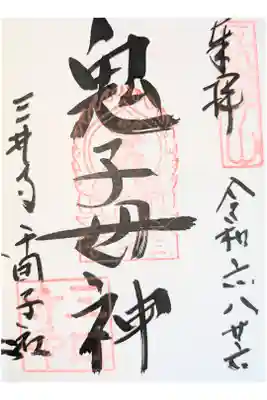 奉拝
令和六八廿六
鬼子母神
三井寺千団子社